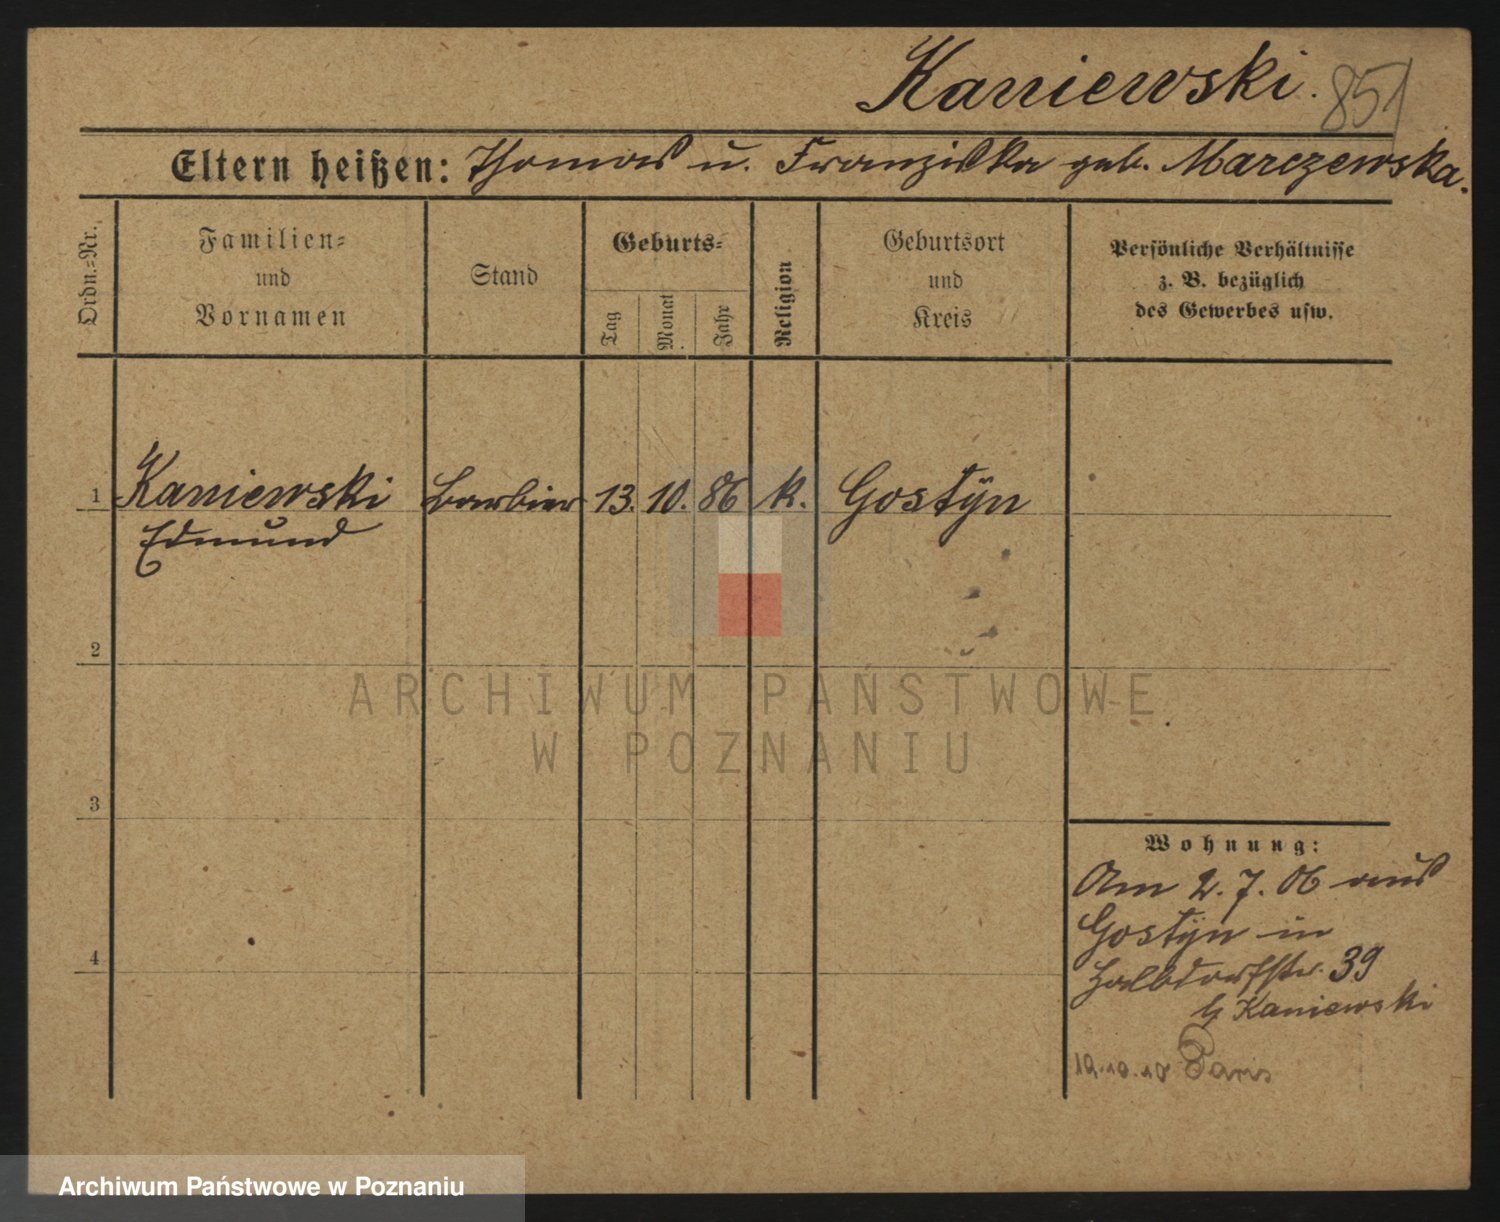 Kaniewski. 851
Eltern heißen: Thomas u. Franziska geb. Marczewska.
Ordn.-Nr.
Familien-
und
Vornamen
Stand
Geburts-
Tag
Monat
Jahr
Religion
Geburtsort
und
Kreis
Persönliche Verhältnisse
z. B. bezüglich
des Gewerbes usw.
1 Kaniewski Barbier 13. 10. 86 k. Gostÿn
Edmund
2
ARCHIWUM PAŃSTWOWE
W POZNANIU
3
4
Wohnung:
Am 2. 7. 06 aus
Gostÿn in
Halbdorfstr. 39
b/ Kaniewski
12.10.10 Paris
Archiwum Państwowe w Poznaniu